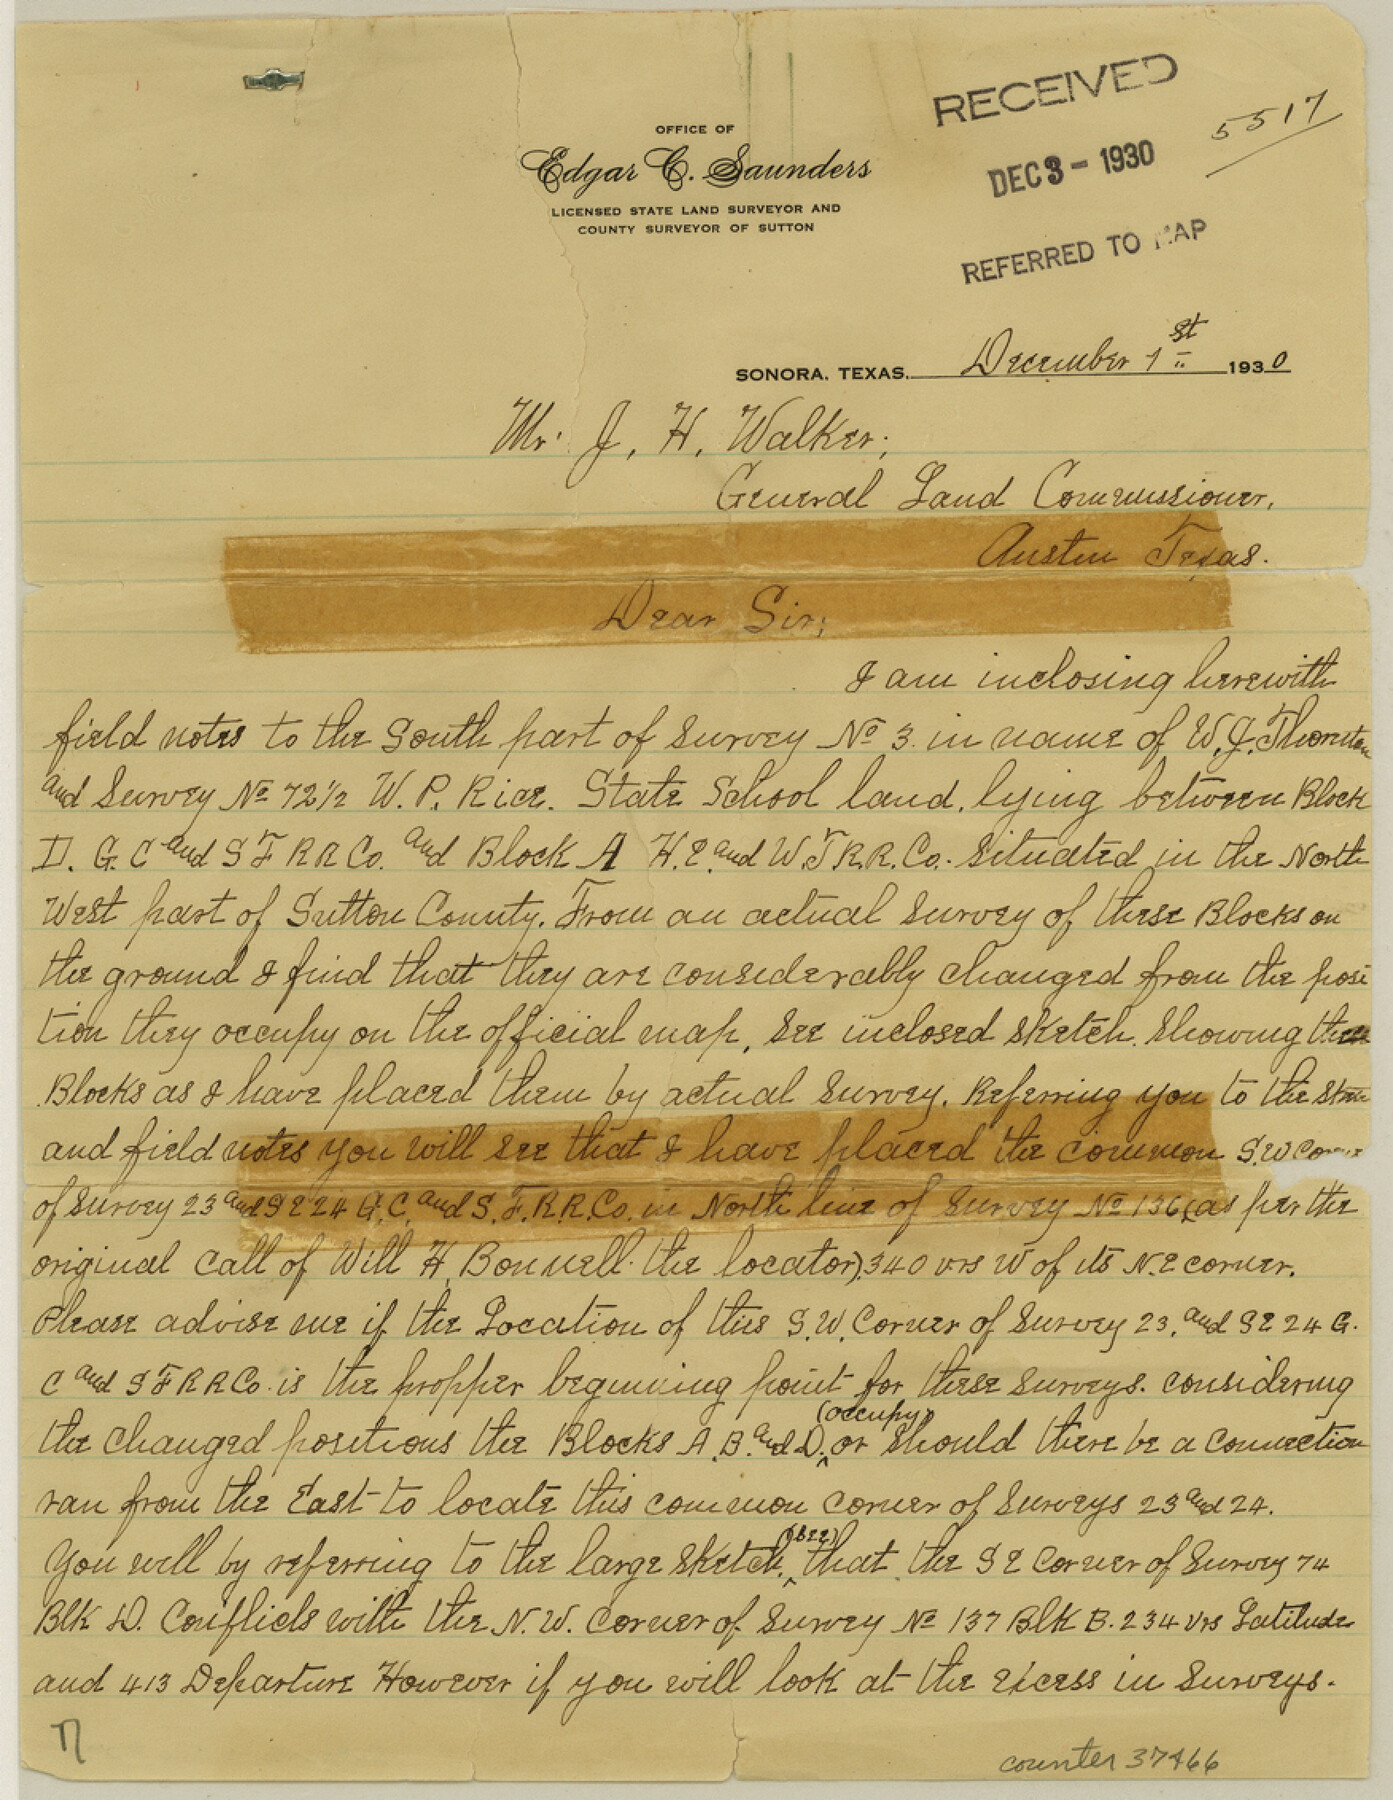 OFFICE OF
Edgar C. Saunders
LICENSED STATE LAND SURVEYOR AND
COUNTY SURVEYOR OF SUTTON
RECEIVED
DEC 3 - 1930
REFERRED TO MAP
5517
SONORA, TEXAS, December 1st 1930
Mr. J. H. Walker;
General Land Commissioner,
Austin Texas.
Dear Sir;
I am inclosing herewith
field notes to the South part of Survey No 3. in name of W. J. Thornton
and Survey No 72 1/2 W. P. Rice. State School land, lying between Block
D. G. C and S F R R Co. and Block A H. E. and W T R. R. Co. situated in the North
West part of Sutton County. From an actual survey of these Blocks on
the ground I find that they are considerably changed from the posi
tion they occupy on the official map, see inclosed sketch. showing
Blocks as I have placed them by actual survey. Referring you to the
and field notes you will see that I have placed the common S. W Corner
of Survey 23 and S E 24 G. C. and S. F. R. R. Co. in North line of Survey No 136 (as per the
original call of Will H. Bonnell the locator) 340 vrs W of its N. E corner.
Please advise me if the Location of this S. W. Corner of Survey 23, and S E 24 G.
C and S F R R Co. is the propper beginning point for these surveys. considering
the changed positions the Blocks A. B. and D. (occupy) or should there be a connection
ran from the East to locate this common corner of Surveys 23 and 24.
You will by referring to the large sketch, (see) that the S E Corner of Survey 74
Blk D. Conflicts with the N. W. Corner of Survey No 137 Blk B. 234 vrs Latitude
and 413 Departure However if you will look at the excess in Surveys.
counter 37466